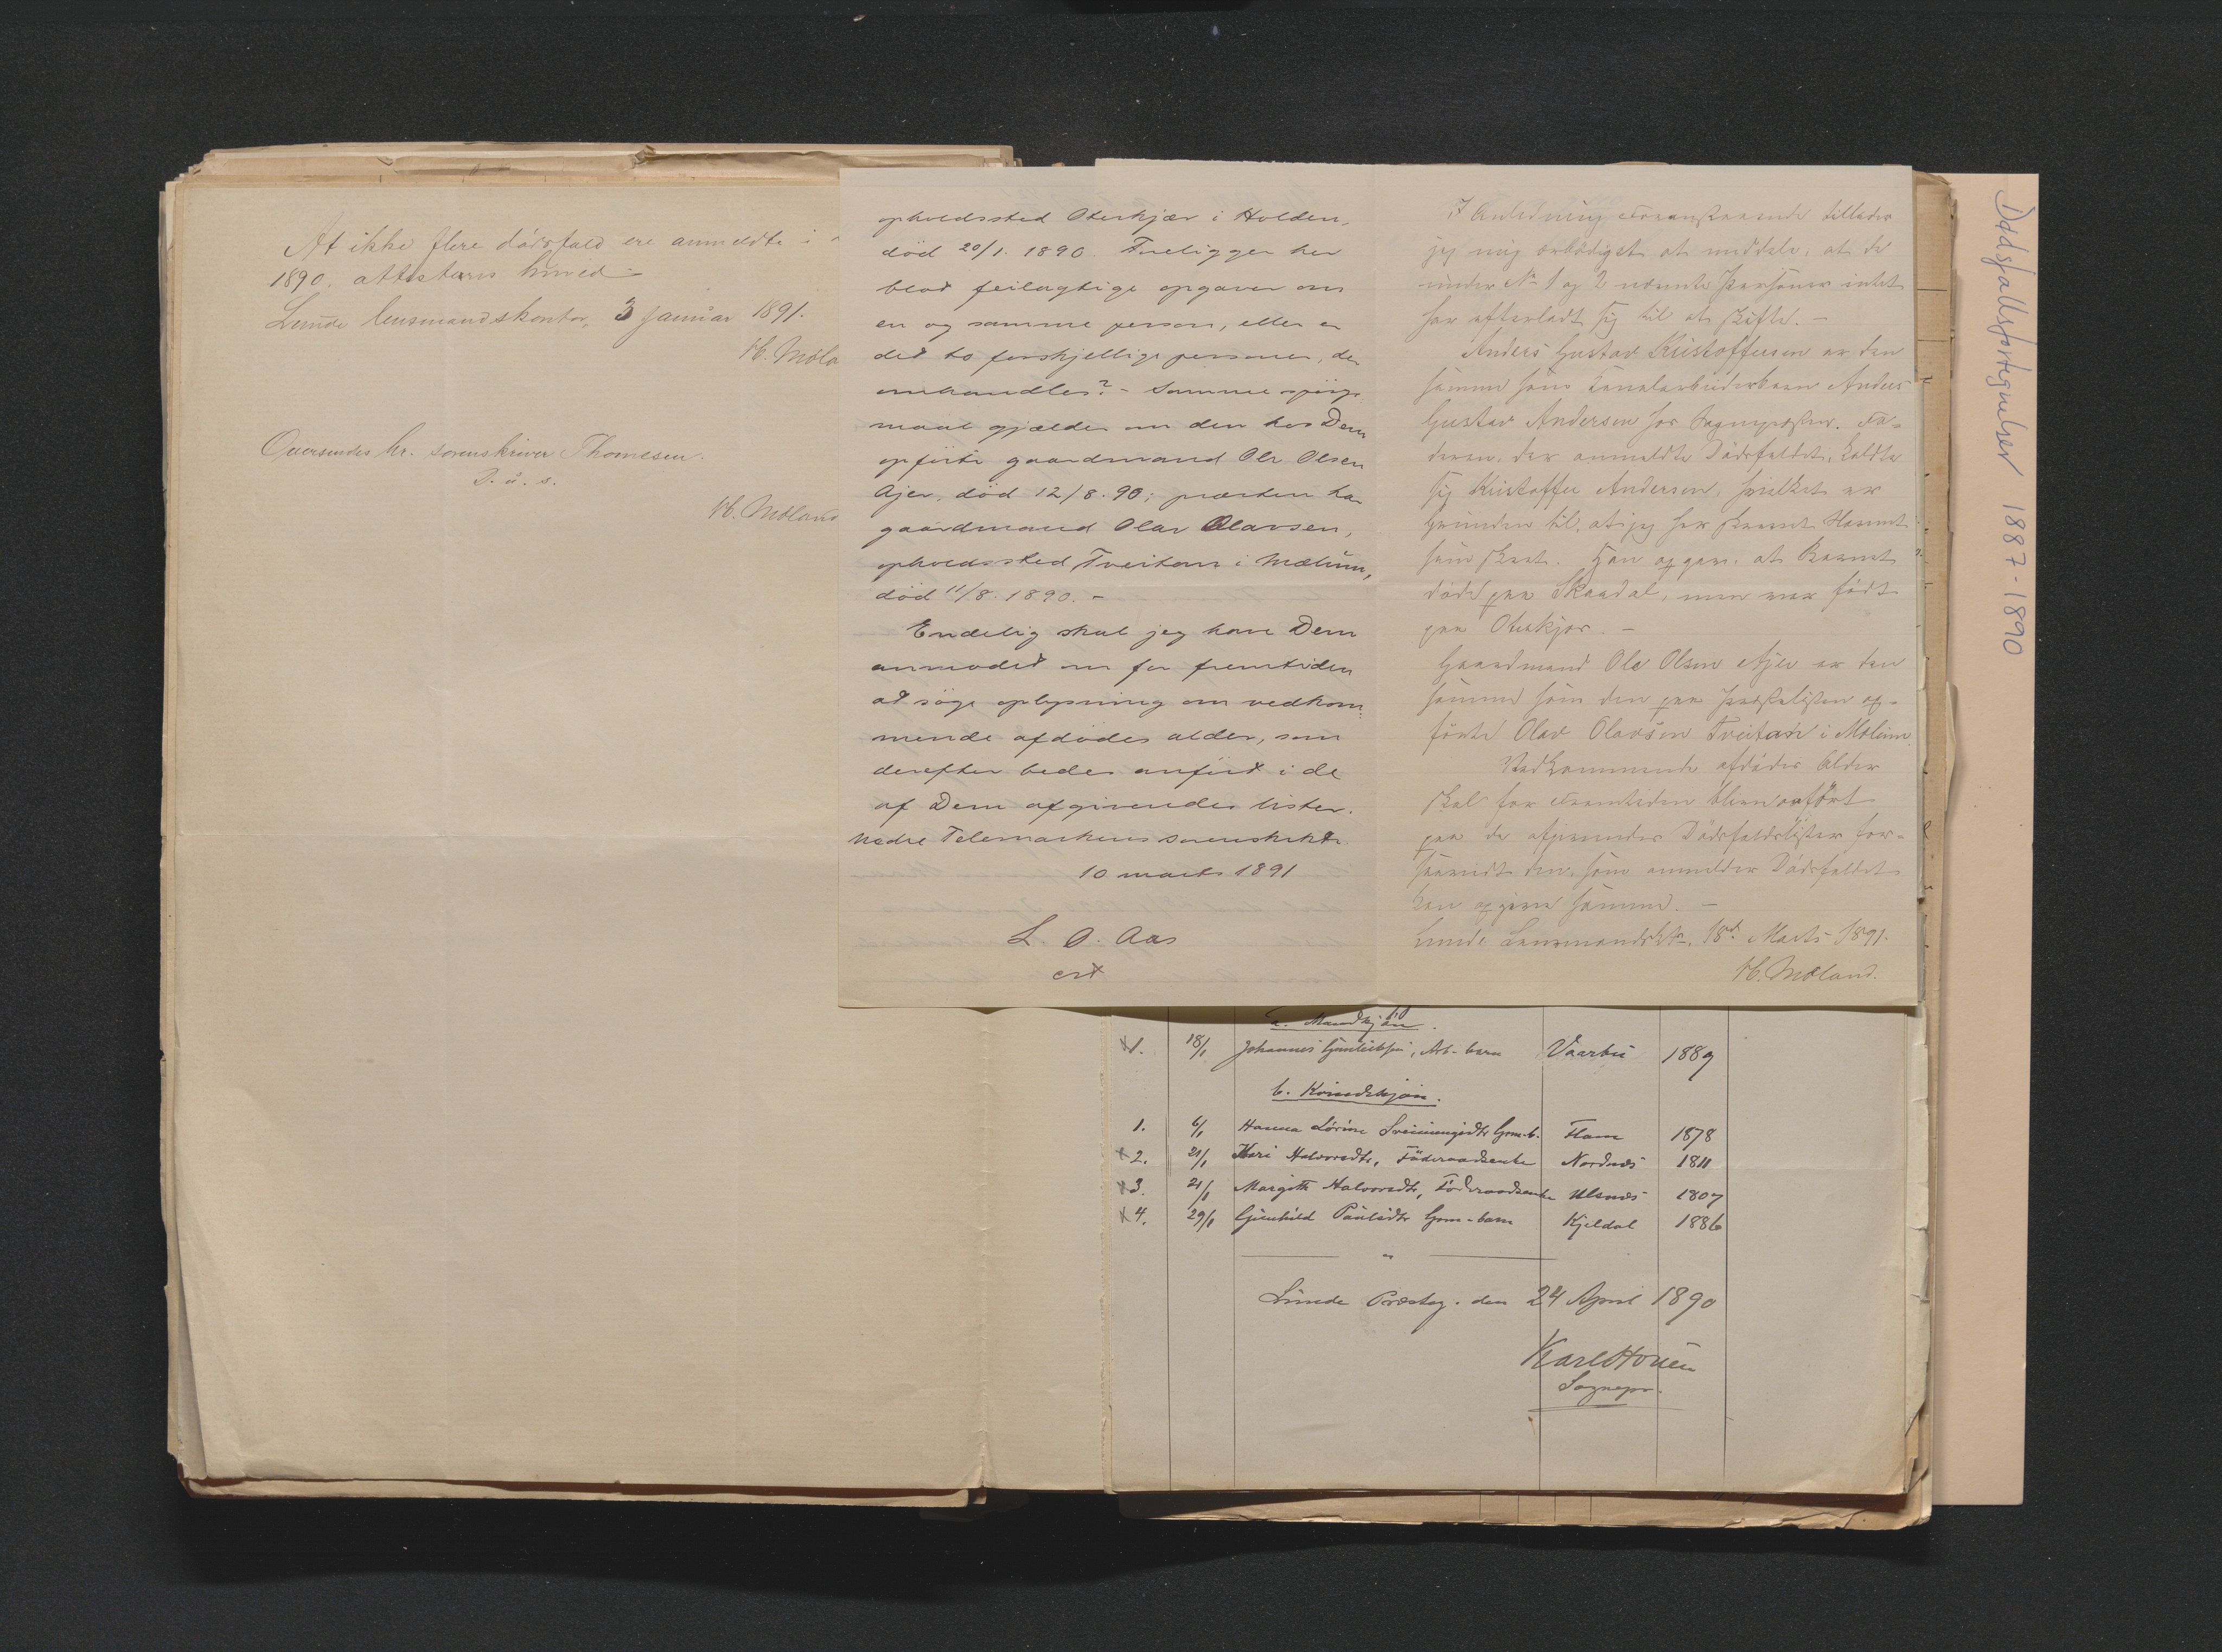 At ikke flere dödsfald ere anmeldte i
1890, attesteres herved
Lunde lensmandskontor, 3 januar 1891.
H. Møla
Oversendes hr. sorenskriver Thomesen.
D. u. s.
H. Moland
opholdssted Oterkjær i Holden,
död 20/1. 1890. Foreligger her
blot feilagtige opgaver om
en og samme person, eller er
det to forskjellige personer, der
omhandles? – Samme spörgs
maal gjælder om den hos Dem
opförte gaardmand Ole Olsen
Ajer, död 12/8. 90; presten har
gaardmand Olav Olavsen,
opholdssted Tveitan i Mælum,
död 11/8. 1890. –
Endelig skal jeg have Dem
anmodet om for fremtiden
at söge oplysning om vedkom:
mende afdödes alder, som
derefter bedes anfört i de
af Dem afgivendes lister.
Nedre Telemarkens sorenskrkt.
10 marts 1891
L O. Aas
cst
I Anledning Foranstaaende tillader
jeg mig ærbödigst at meddele, at de
under No 1 og 2 nævnte Personer intet
har efterladt sig til at skifte. –
Anders Gustav Kristoffersen er den
samme som Kanalarbeiderbarn Anders
Gustav Andersen hos Sognepresten. Fa-
deren, der anmeldte Dödsfaldet, kaldte
sig Kristoffer Andersen, hvilket er
Grunden til, at jeg har skrevet Navnet
som skeet. Han opgav, at Barnet
döde paa Skaadal, men var födt
paa Oterkjær. –
Gaardmand Ole Olsen Ajer er den
samme som den paa Presteliſten op-
förte Olav Olavsen Tveitan i Mölum.
Vedkommende afdödes Alder
skal for Fremtiden blive anfört
paa de afgivendes Dödsfaldslister for-
saavidt den, som anmelder Dödsfaldet
kan opgive samme. –
Lunde Lensmandskt. 18de Marts 1891.
H. Moland.
a. Mandkjön.
x1. 18/1 Johannes Gunleiksen, Arb-barn Vaarbu 1889
b. Kvindekjön.
1. 6/1 Hanna Lörine Sveinungsdtr Grm-b. Flom 1878
x2. 21/1 Kari Halvorsdtr, Föderaadsenke Nordnes 1811
x3. 21/1 Margith Halvorsdtr, Föderaadsenke Ulsnes 1807
x4. 29/1 Gunhild Paulsdtr Grm-barn Kjeldal 1886
Lunde Presteg. den 24 April 1890
Karl Houen
Sognepr.
Dødsfallsfortegnelser 1887-1890